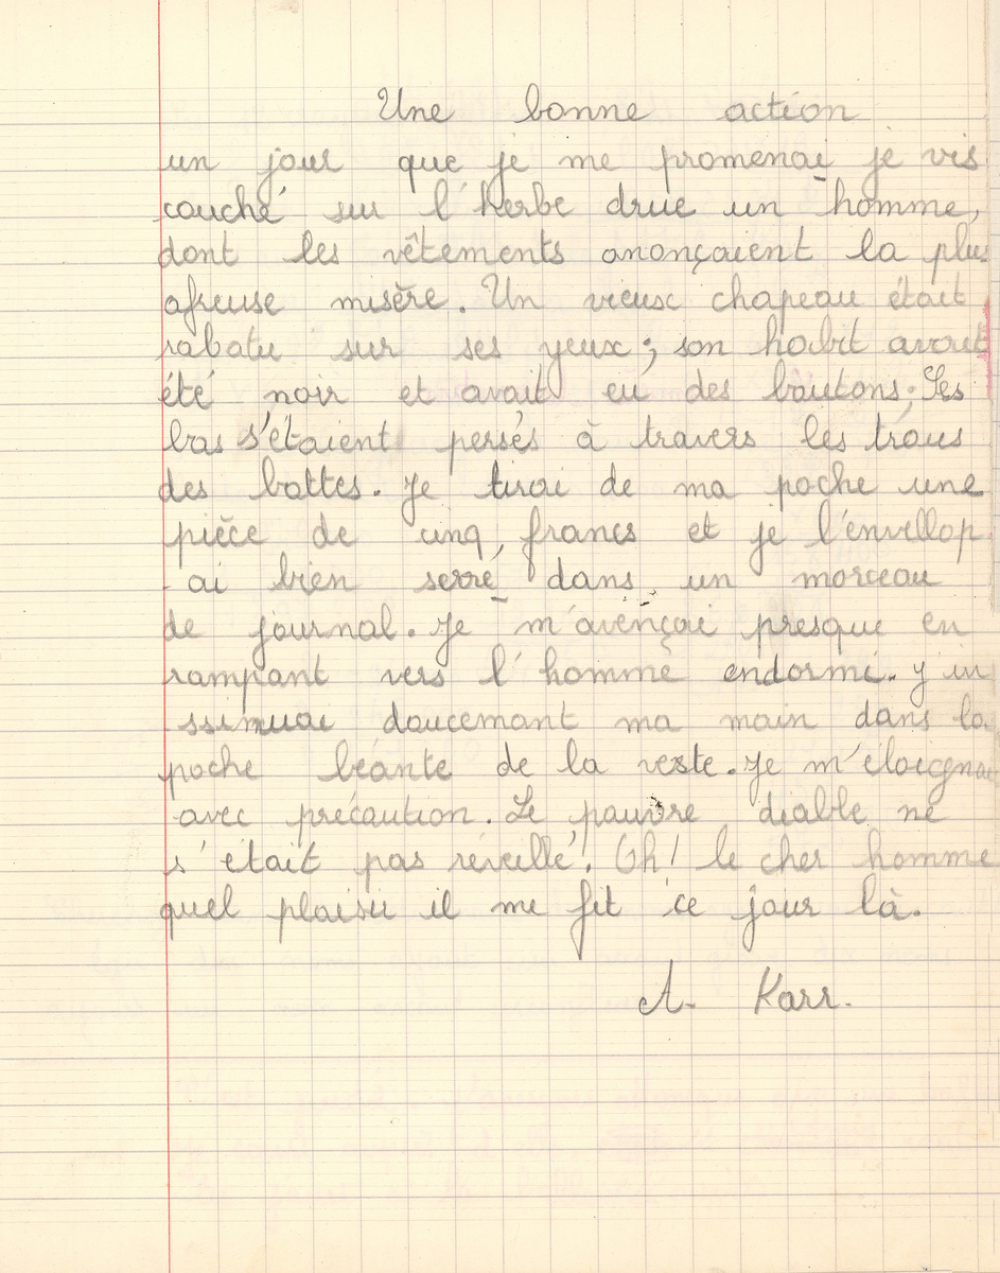 Une bonne action
un jour que je me promenai je vis
couché sur l'herbe drue un homme,
dont les vêtements anonçaient la plus
afreuse misère. Un vieux chapeau était
rabatu sur ses yeux; son habit avait
été noir et avait eu des boutons. Ses
bas s'étaient persés à travers les trous
des bottes. Je tirai de ma poche une
pièce de cinq francs et je l'envellop
-ai bien serré dans un morceau
de journal. Je m'avençai presque en
rampant vers l'homme endormi. J'in
ssinuai doucemant ma main dans la
poche béante de la veste. Je m'éloignai
avec précaution. Le pauvre diable ne
s'était pas réveillé. Oh! le cher homme
quel plaisir il me fit ce jour là.
A. Karr.